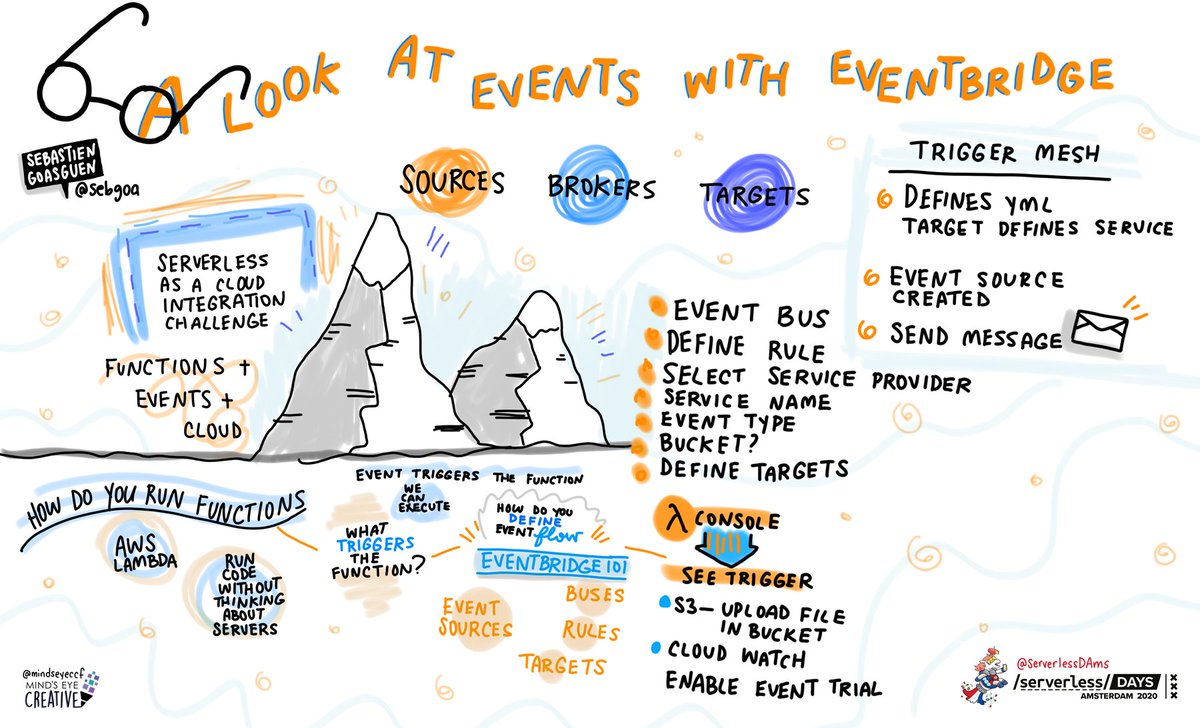 A LOOK AT EVENTS WITH EVENTBRIDGE
SEBASTIEN
GOASGUEN
@sebgoa
SOURCES
BROKERS
TARGETS
SERVERLESS
AS A CLOUD
INTEGRATION
CHALLENGE
FUNCTIONS +
EVENTS +
CLOUD
EVENT BUS
DEFINE RULE
SELECT SERVICE PROVIDER
SERVICE NAME
EVENT TYPE
BUCKET?
DEFINE TARGETS
TRIGGER MESH
DEFINES YML
TARGET DEFINES SERVICE
EVENT SOURCE
CREATED
SEND MESSAGE
HOW DO YOU RUN FUNCTIONS
AWS
LAMBDA
RUN
CODE
WITHOUT
THINKING
ABOUT
SERVERS
EVENT TRIGGERS THE FUNCTION
WE
CAN
EXECUTE
WHAT
TRIGGERS
THE
FUNCTION?
HOW DO YOU
DEFINE
EVENT flow
EVENTBRIDGE 101
EVENT
SOURCES
BUSES
RULES
TARGETS
λ CONSOLE
SEE TRIGGER
S3 — UPLOAD FILE
IN BUCKET
CLOUD WATCH
ENABLE EVENT TRIAL
@mindseyeccf
MIND'S EYE
CREATIVE
@ServerlessDAms
/serverless/DAYS
AMSTERDAM 2020
XXX